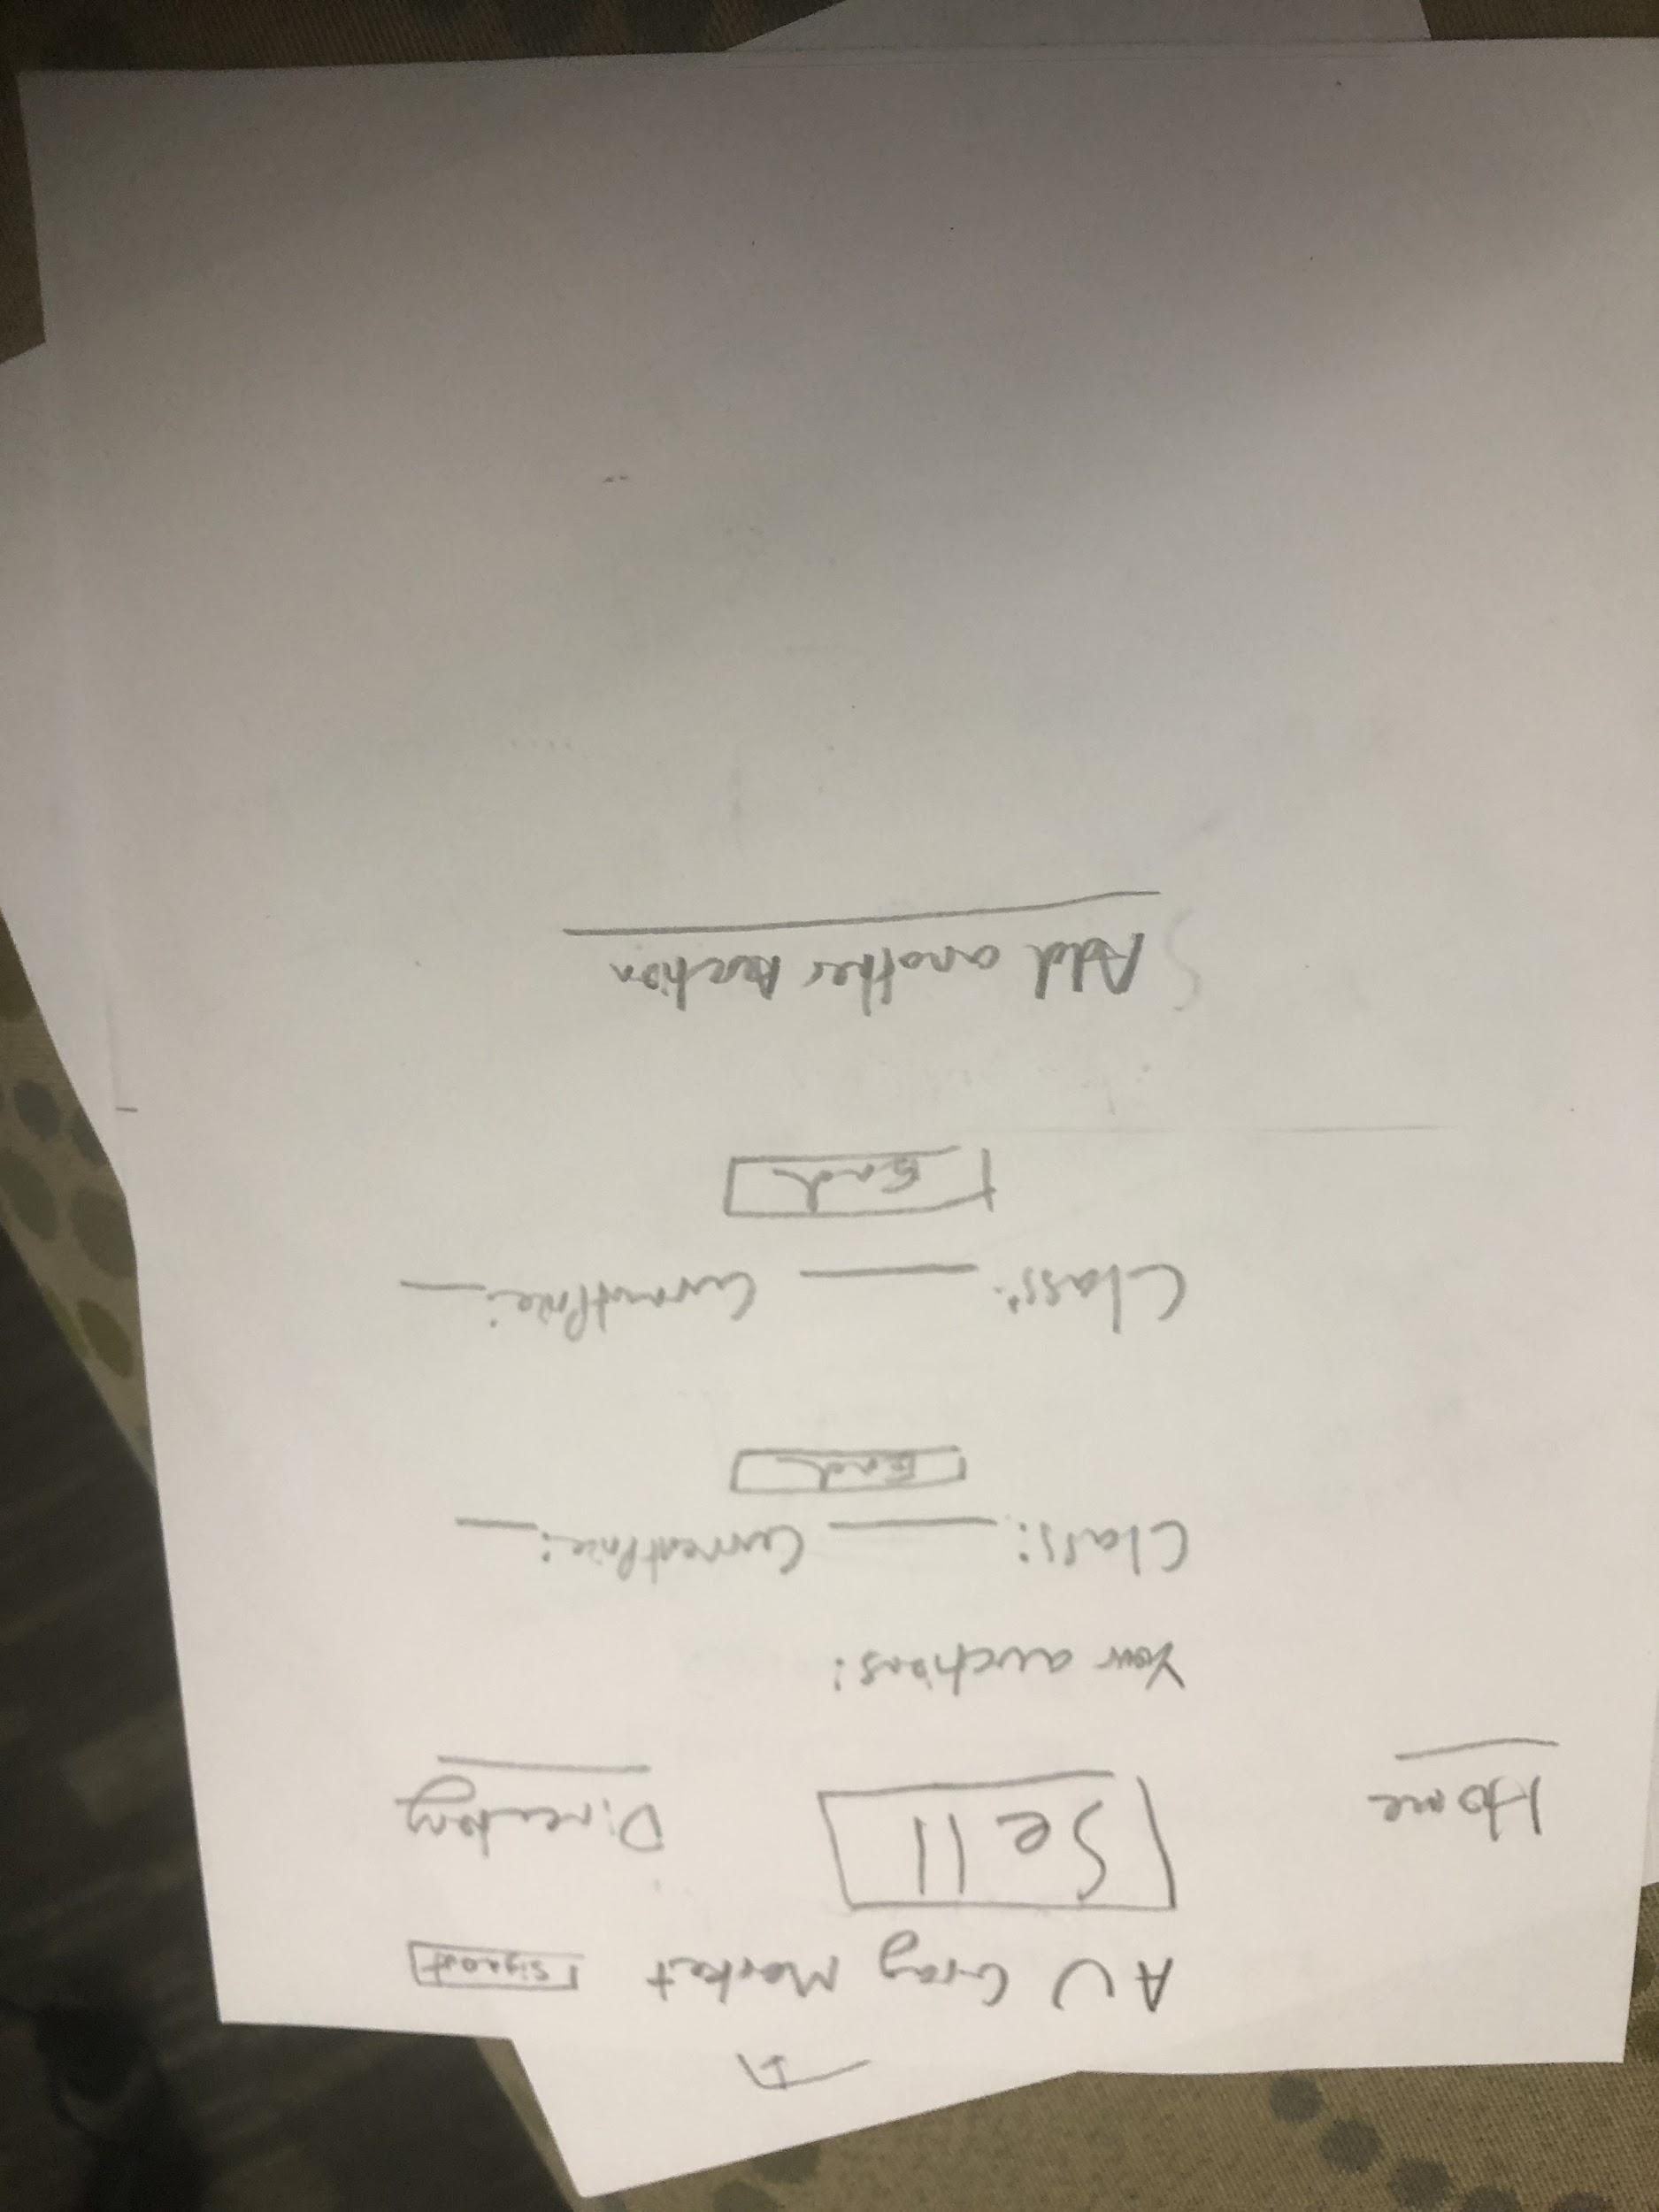 AU Gray Market Signout
Home Sell Directory
Your auctions:
Class: ____ Current Price: ____
End
Class: ____ Current Price: ____
End
Add another Auction